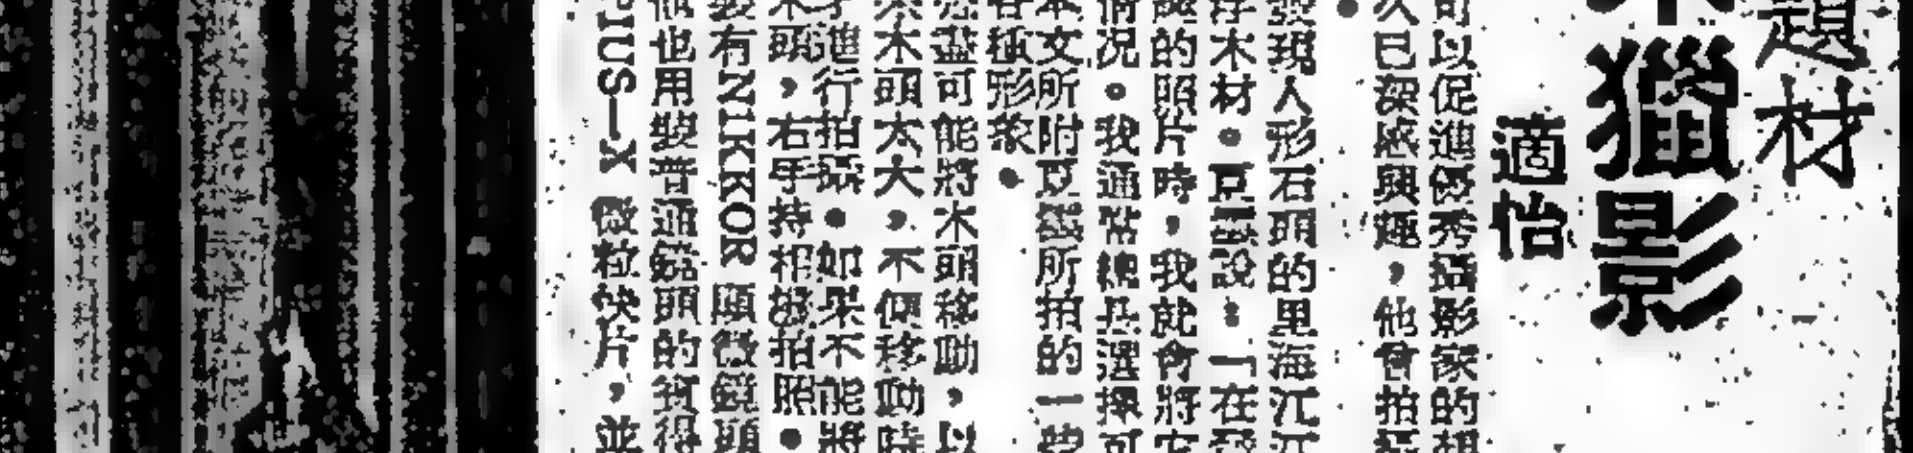 題材
獵影
適怡
可以促進優秀攝影家的想
久已深感興趣，他曾拍攝
發現人形石頭的里海沉沉
浮木材。亘説：「在發
的照片時，我就會將它
情况。我通常總是選擇可
本文所附及幾所拍的一些
各種形象。
盡可能將木頭移動，以
木頭太大，不便移動時
才進行拍攝。如果不能將
木頭，右手持相機拍照。
裝有NIKKOR 顯微鏡頭
他也用裝普通鏡頭的
PIUS—X 微粒快片，並